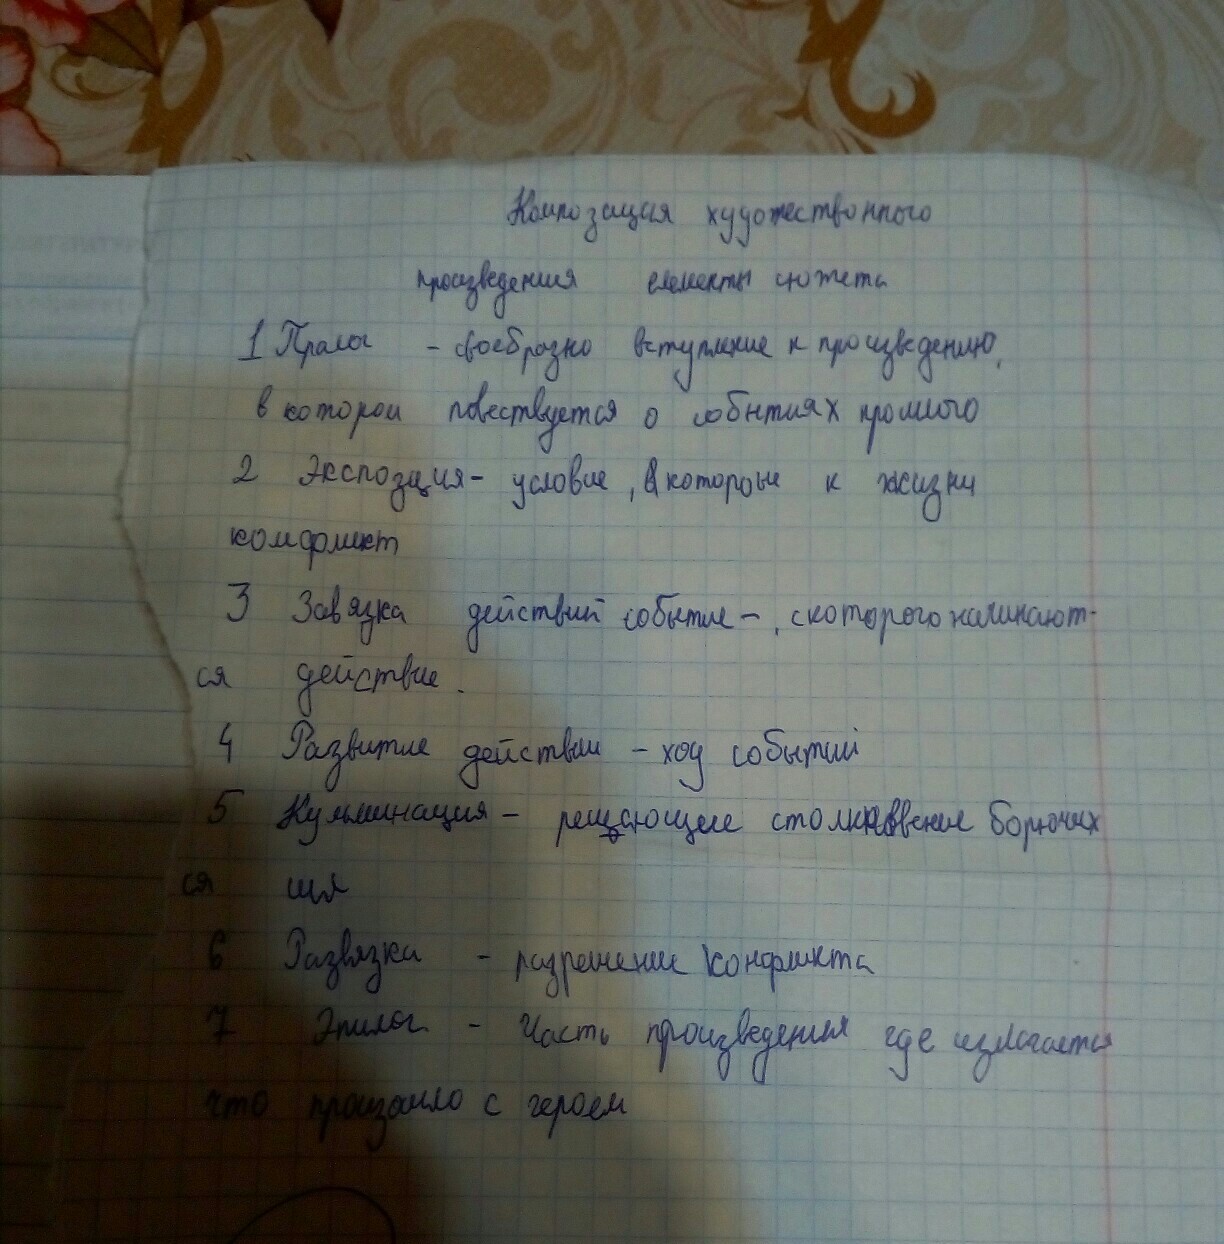 Композация художественного
произведения елементы сюжета
1 Пралог - своебразно вступление к произведению,
в которой повествуется о событиях прошлого
2 Экспозация - условие, в которые к жизни
комфликт
3 Завязка действий событие - , с которого начинают-
ся действие.
4 Развитие действии - ход событий
5 Кульминация - решающее столкновение борючих
ся
6 Развязка - разрешение конфликта
7 Эпилог - Часть произведения где излагается
что произошло с героем